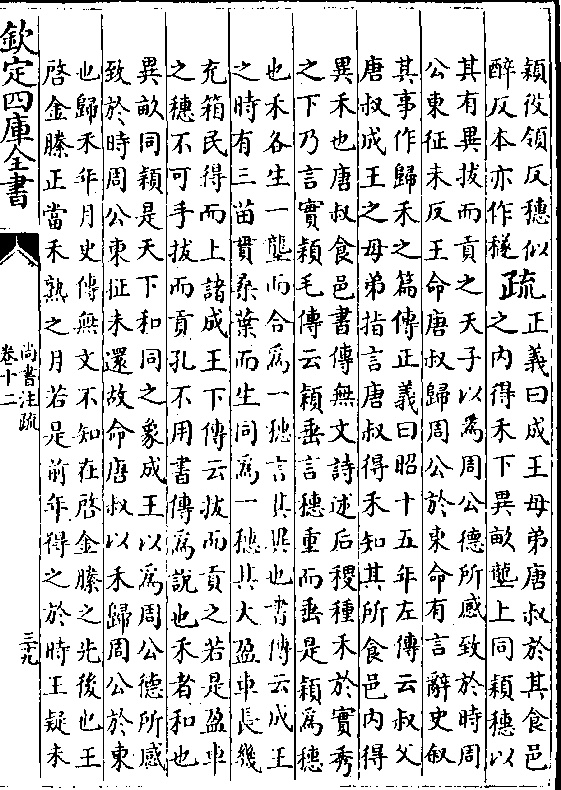 穎役領反穗似
醉反本亦作穟
疏
正義曰成王母弟唐叔於其食邑
之內得禾下異畝壟上同穎穗以
其有異拔而貢之天子以為周公德所感致於時周
公東征未反王命唐叔歸周公於東命有言辭史叙
其事作歸禾之篇傳正義曰昭十五年左傳云叔父
唐叔成王之母弟指言唐叔得禾知其所食邑內得
異禾也唐叔食邑書傳無文詩述后稷種禾於實秀
之下乃言實穎毛傳云穎垂言穗重而垂是穎為穗
也禾各生一壟而合為一穗言其異也書傳云成王
之時有三苗貫桑葉而生同為一穗其大盈車長幾
充箱民得而上諸成王下傳云拔而貢之若是盈車
之穗不可手拔而貢孔不用書傳為說也禾者和也
異畝同穎是天下和同之象成王以為周公德所感
致於時周公東征未還故命唐叔以禾歸周公於東
也歸禾年月史傳無文不知在啓金縢之先後也王
啓金縢正當禾熟之月若是前年得之於時王疑未
欽定四庫全書
尚書注疏
卷十二
三十九